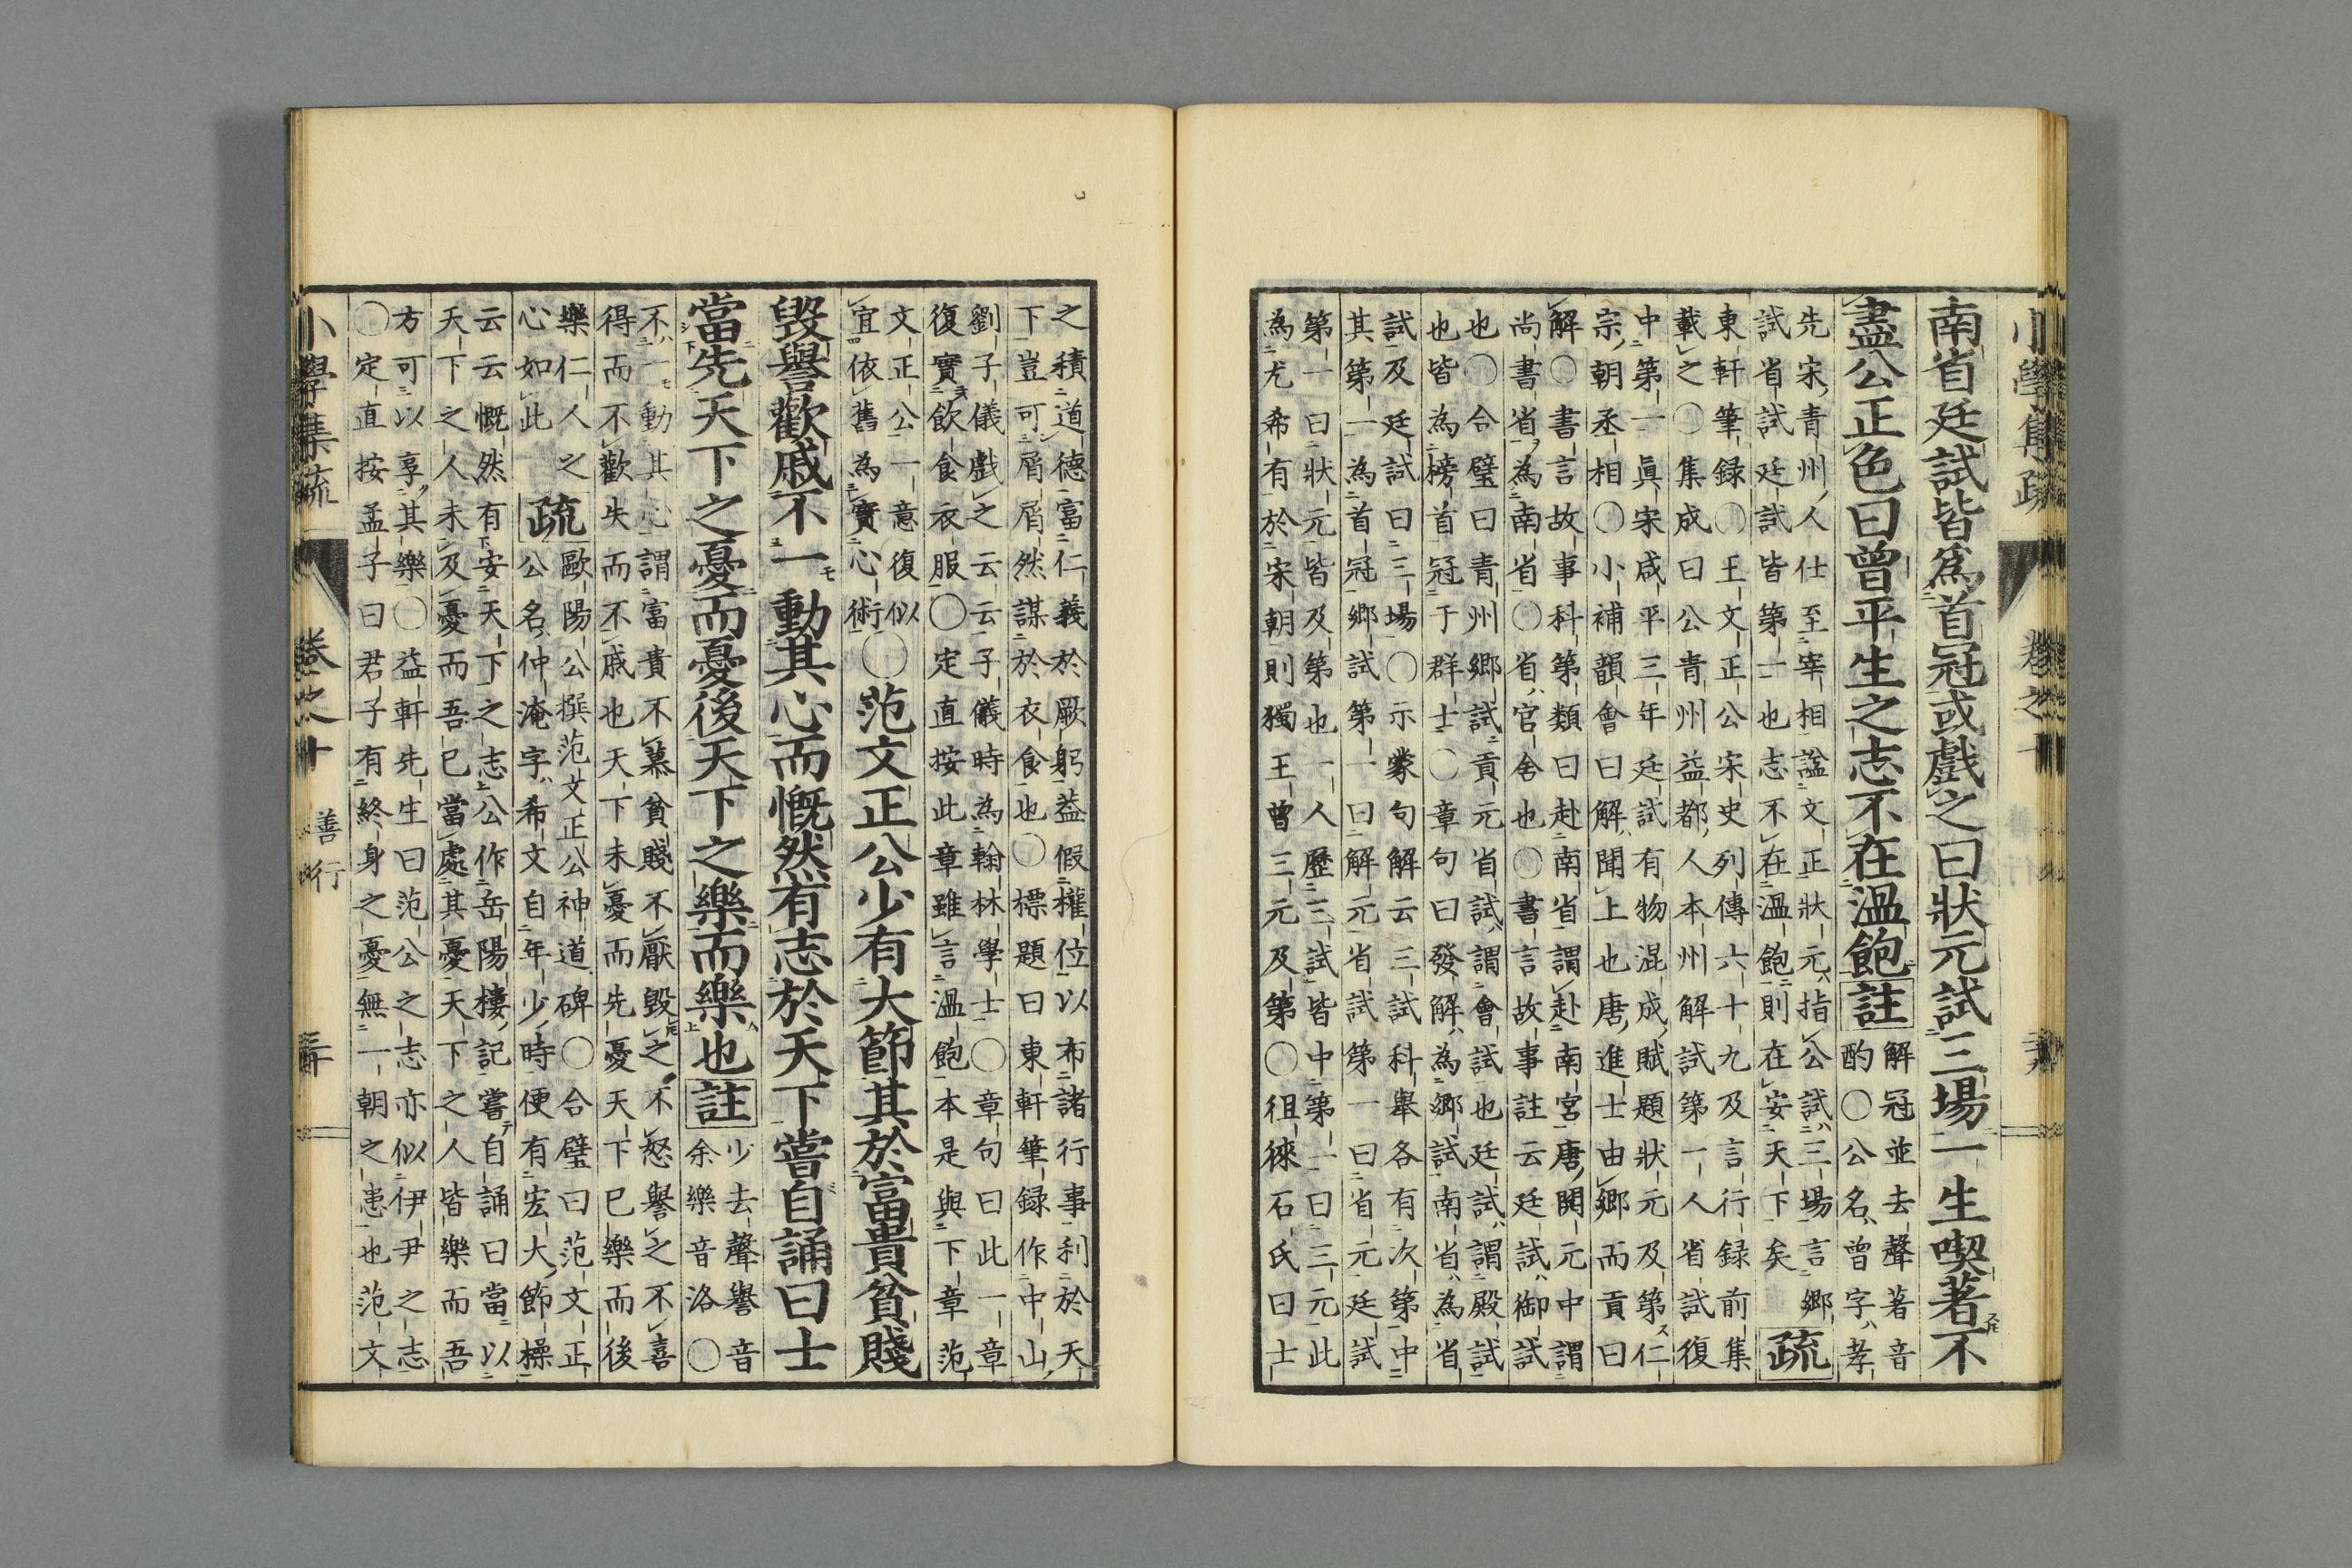 南省廷試皆為首冠或戲之曰狀元試三場一生喫著不
盡公正色曰曾平生之志不在溫飽 註 解冠並去聲著音
酌〇公名曾字孝
先宋青州人仕至宰相諡文正狀元指公試三場言鄉
試省試廷試皆第一也志不在溫飽則在安天下矣 疏
東軒筆録〇王文正公宋史列傳六十九及言行録前集
載之〇集成曰公青州益都人本州解試第一人省試復
中第一真宋咸平三年廷試有物混成賦題狀元及第仁
宗朝丞相〇小補韻會曰解聞上也唐進士由鄉而貢曰
解〇書言故事科第類曰赴南省謂赴南宮唐開元中謂
尚書省為南省〇省官舍也〇書言故事註云廷試御試
也〇合璧曰青州鄉試貢元省試謂會試也廷試謂殿試
也皆為榜首冠于群士〇章句曰發解為鄉試南省為省
試及廷試曰三場〇示蒙句解云三試科舉各有次第中
其第一為首冠鄉試第一曰解元省試第一曰省元廷試
第一曰狀元皆及第也一人歷三試皆中第一曰三元此
為尤希有於宋朝則獨王曾三元及第〇徂徠石氏曰士
小學集疏 卷之十
之積道德富仁義於厥躬葢假權位以布諸行事利於天
下豈可屑屑然謀於衣食也〇標題曰東軒筆録作中山
劉子儀戲之云云子儀時為翰林學士〇章句曰此一章
復實飲食衣服〇定直按此章雖言溫飽本是與下章范
文正公一意復似
宜依舊為實心術〇范文正公少有大節其於富貴貧賤
毀譽歡戚不一動其心而慨然有志於天下嘗自誦曰士
當先天下之憂而憂後天下之樂而樂也 註 少去聲譽音
余樂音洛〇
不一動其心謂富貴不慕貧賤不厭毀之不怒譽之不喜
得而不歡失而不戚也天下未憂而先憂天下已樂而後
樂仁人之
心如此 疏 歐陽公撰范文正公神道碑〇合璧曰范文正
公名仲淹字希文自年少時便有宏大節操
云云慨然有安天下之志公作岳陽樓記嘗自誦曰當以
天下之人未及憂而吾已當處其憂天下之人皆樂而吾
方可以享其樂〇益軒先生曰范公之志亦似伊尹之志
〇定直按孟子曰君子有終身之憂無一朝之患也范文
小學集疏 卷之十 善行 三十